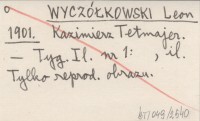 WYCZÓŁKOWSKI Leon
1901. Kazimierz Tetmajer.
— Tyg. Il. nr 1: , il.
Tylko reprod. obrazu.